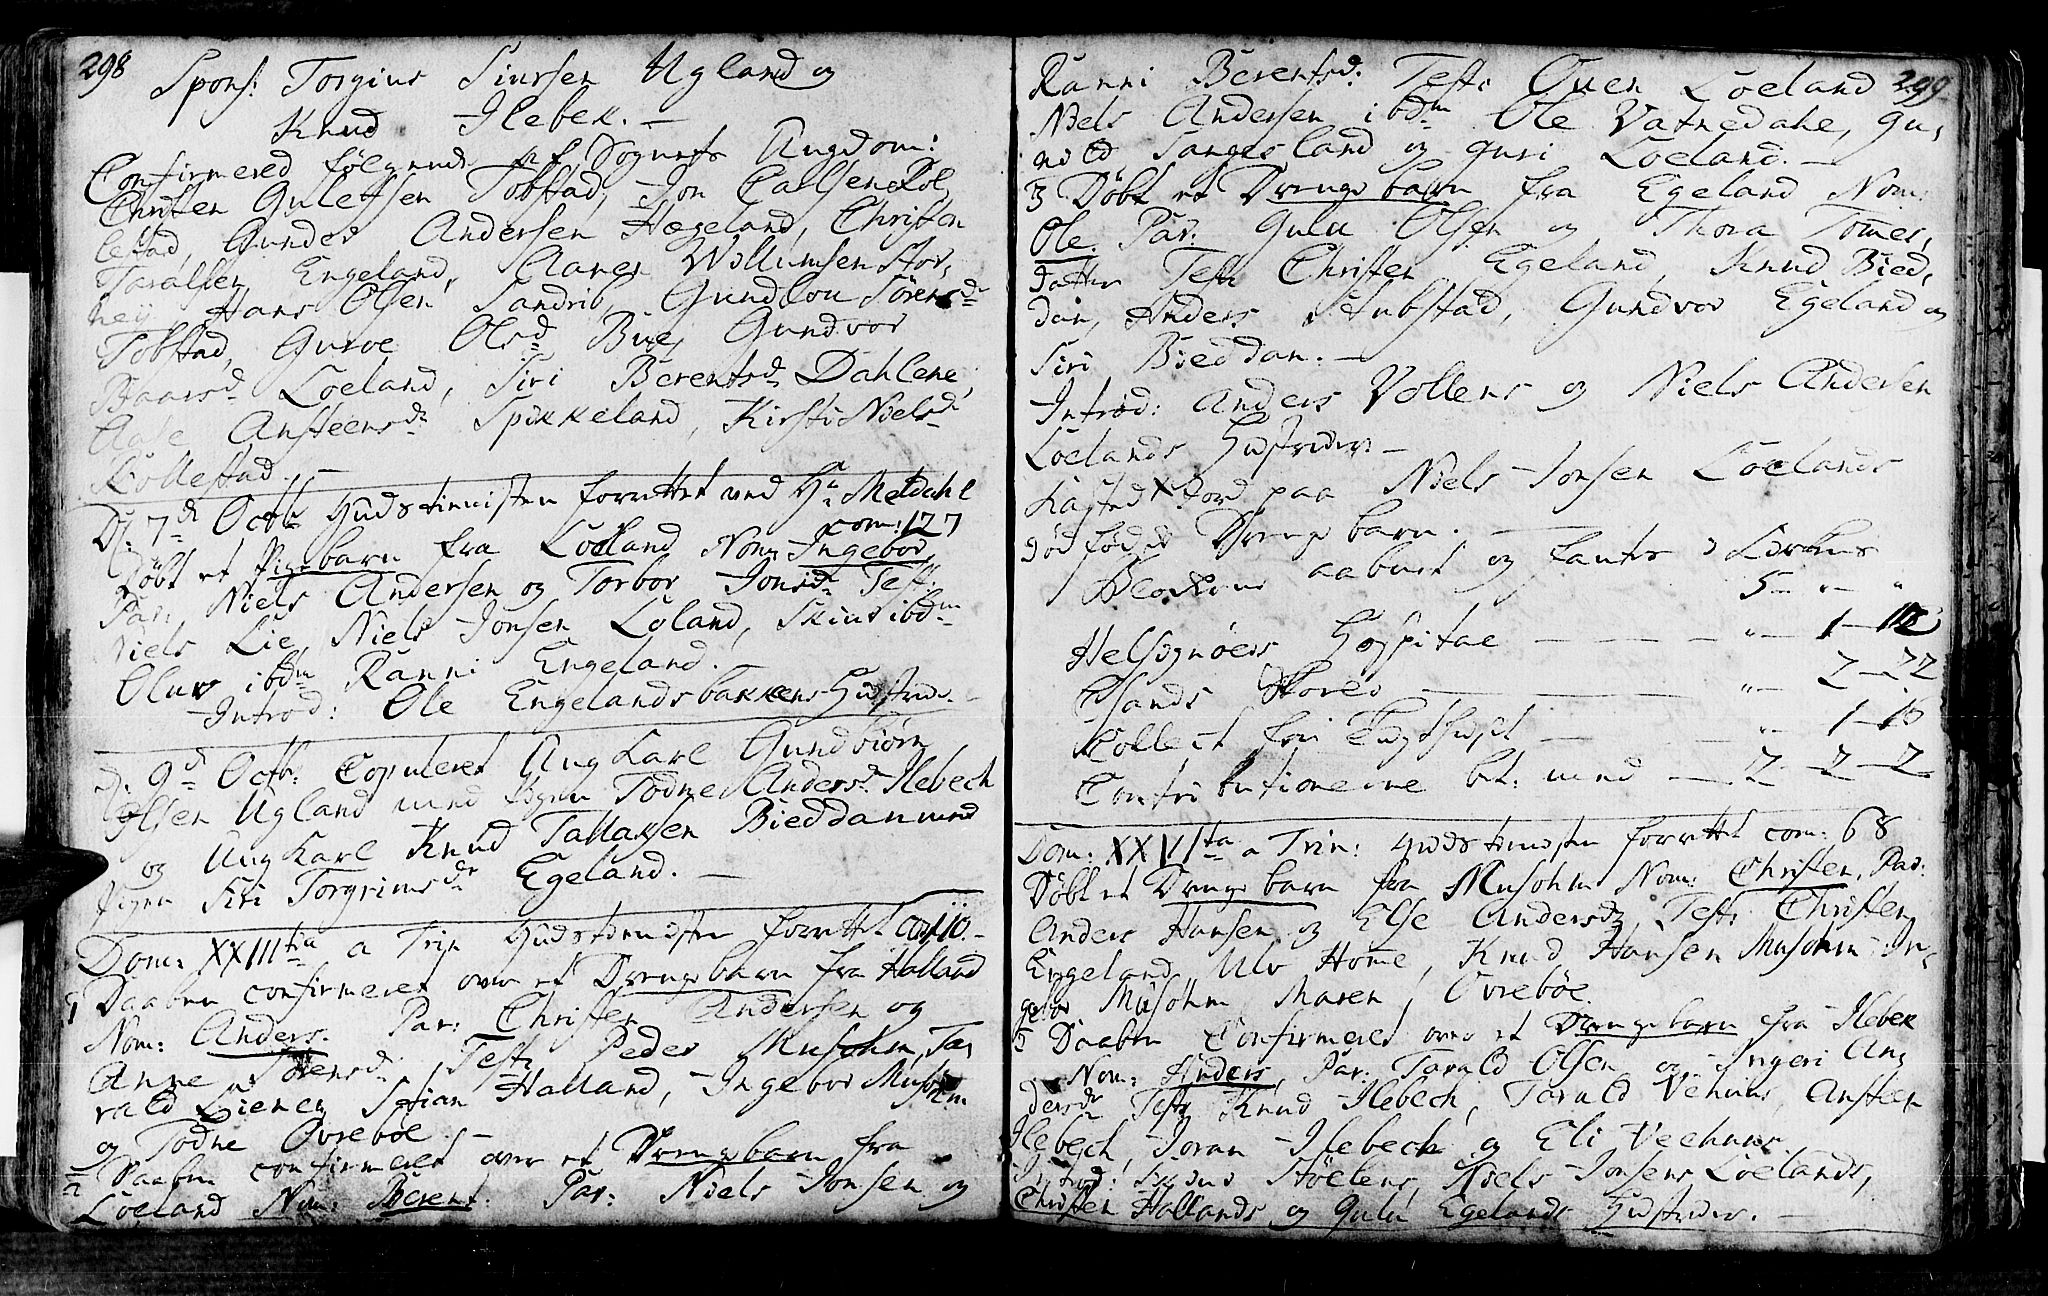 298
Spons: Torgius Siursen Ugland og
Knud Ilebek. —
Confirmered følgende af Sognets Ungdom:
Christen Gulettsen Tobstad, Jon Carlsen Rol
lestad, Gunder Andersen Hægeland, Christen
Taralsen Engeland, Aanen Willumsen Stor,
hey Hans Olsen Sandrib, Gundlou Sørensd.
Tobstad, Guroe Olsd. Bue, Gundvor
Baarsd. Loeland, Siri Berentsd. Dahlene,
Aase Ansteensd. Spikkeland, Kirsti Nielsd.
Rollestad. —
D: 7d Octbr Gudstienisten forrettet ved Hr Meldahl
com: 127
Døbt et Pigebarn fra Loeland Nom: Ingebor,
Par: Niels Andersen og Torbor Jonsd. Test:
Niels Lie, Niels Jonsen Loland, ibdm
Oluv ibdm Ranni Engeland. —
Introd: Ole Engelandsbakkens Hustrue. —
D. 9d Octbr: Copuleret Ung Karl Gundbiørn
Olsen Ugland med Pigen Todne Andersd. Ilebech
og Ung Karl Knud Tallaksen Bieddan med
Pigen Siri Torgrimsdr Egeland. —
Dom: XXIIItia a Trin Gudstienisten forrettet com: 110. —
1 Daaben confirmeret over et Drengebarn fra Halland
Nom: Anders. Par: Christen Andersen og
Anne Sørensd. Test: Peder Musohm, Ta,
rald Lienen Halland, Ingebor Musohm
og Todne Øvrebøe. —
2 Daaben confirmeret over et Drengebarn fra
Loeland Nom: Berent. Par: Niels Jonsen og
299
Ranni Berentsd: Test: Ouen Loeland
Niels Andersen ibdm Ole Vatnedahe, Gu,
nild Sangesland og Guri Loeland. —
3 Døbt et Drengebarn fra Egeland Nom:
Ole. Par: Gulu Olsen og Thora Tomes,
datter Test: Christen Egeland, Knud Bied,
dan, Anders Aubstad, Gundvor Egeland og
Siri Bieddan. —
Introd: Anders Vollens og Niels Andersen
Loelands Hustruer. —
Kasted Jord paa Niels Jonsen Loelands
død fødde Drenge barn. —
aabnet og fantes
5 — " — "
Helsignøers Hospital — — — " — 1 — 12
— — " — 2 — 22
Collect for Tugthuset — — " — 1 — 16
Contributionerne bt: med — 2 — 2 — 2
Dom: XXVIta a Trin: Gudstienisten forrettet com: 68
Døbt et Drenge barn fra Musohm Nom: Christen, Par:
Anders Hansen og Else Andersd. Test: Christen
Engeland, Ulv Home, Knud Hansen Musohm In,
gebor Musohm Maren Øvrebøe.
2 Daaben Confirmeret over et Drengebarn fra Ilebek
Nom: Anders, Par: Tarald Olsen og Ingeri An,
dersdr Test: Knud Ilebech, Tarald Vehuus, Ansteen
Ilebech, Joran Ilebech og Eli Veehuus.
Introd: Støelens, Niels Jonsens Loelands,
Christen Hallands og Gulu Egelands Hustruer. —